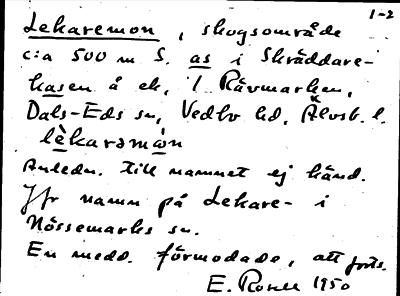 1-2
Lekaremon, skogsområde
c:a 500 m S. as i Skräddare-
kasen å ek. 1 Rävmarken,
Dals-Eds sn, Vedbo hd, Älvsb. l.
lèkarəmòn
Anledn. till namnet ej känd.
Jfr namn på Lekare- i
Nössemarks sn.
En medd. förmodade, att forts.
E. Rosell 1950